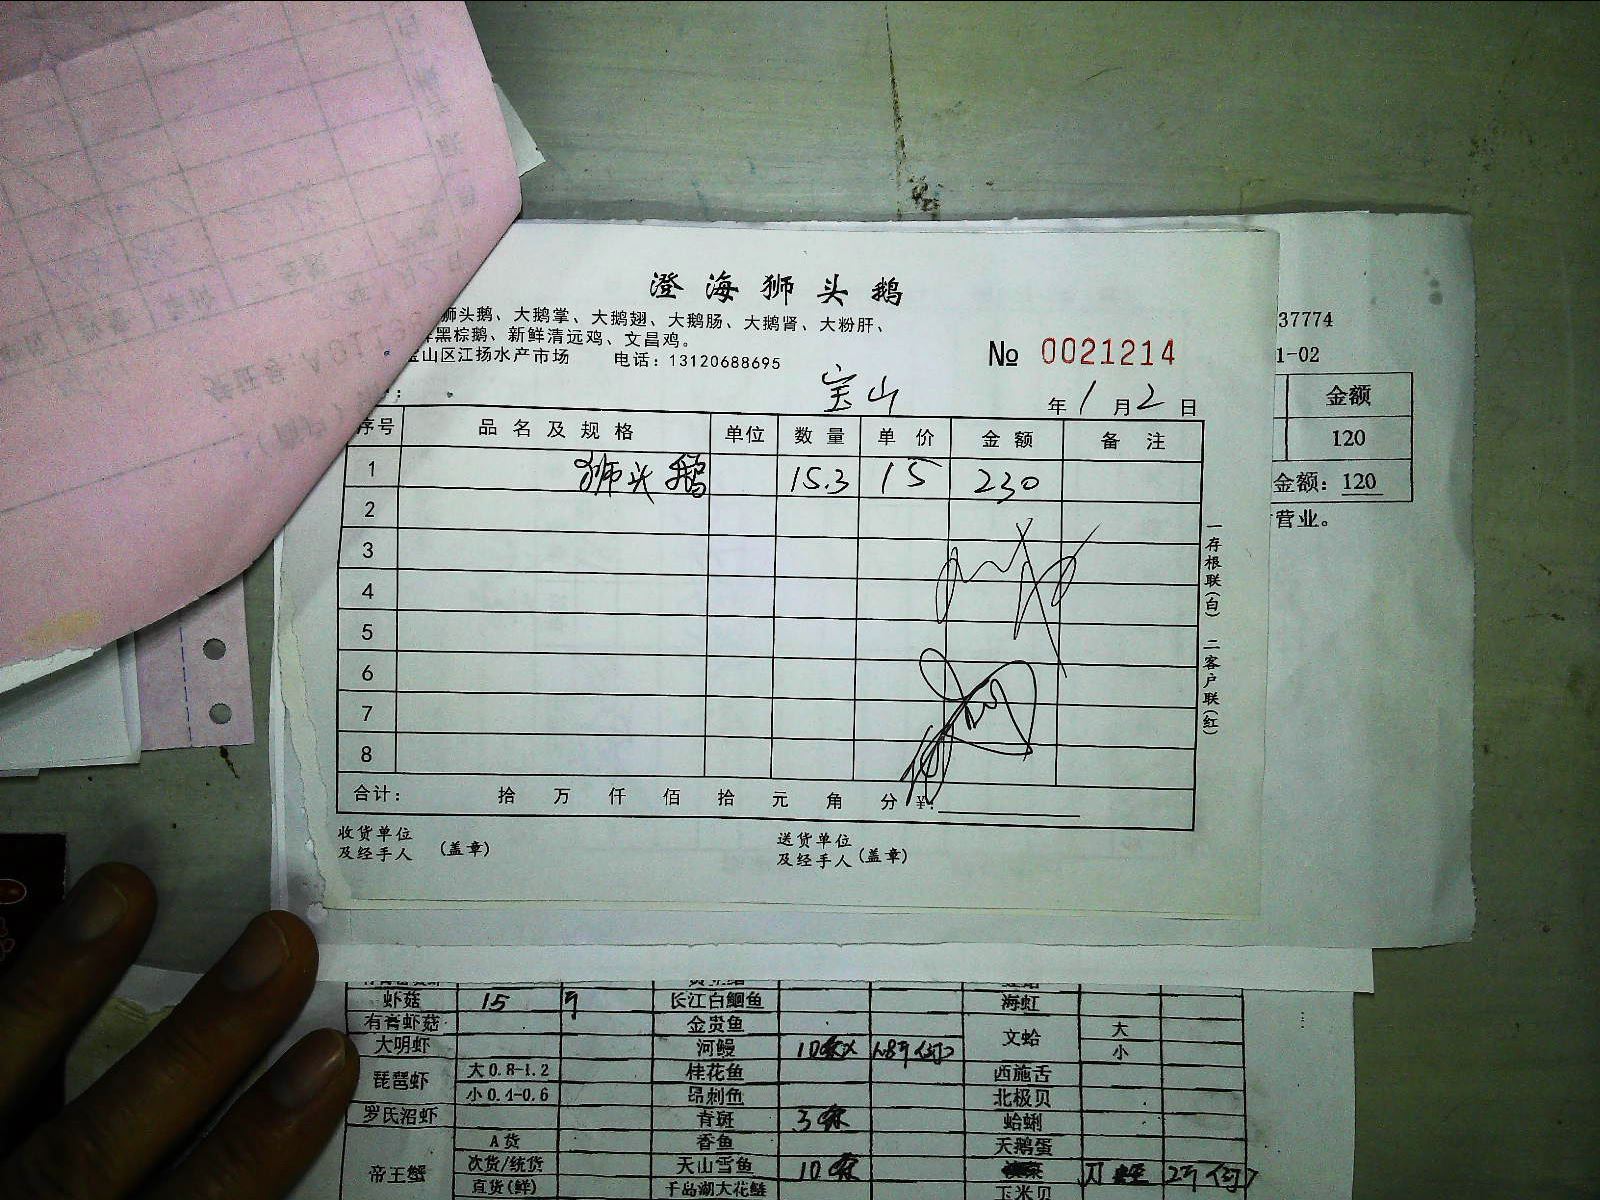 澄海狮头鹅
狮头鹅、大鹅掌、大鹅翅、大鹅肠、大鹅肾、大粉肝、
黑棕鹅、新鲜清远鸡、文昌鸡。
宝山区江扬水产市场 电话：13120688695
№ 0021214
宝山
年 1 月 2 日
序号 品名及规格 单位 数量 单价 金额 备注
1 狮头鹅 15.3 15 230
2
3
4
5
6
7
8
合计： 拾 万 仟 佰 拾 元 角 分 ¥:
收货单位
及经手人 (盖章)
送货单位
及经手人 (盖章)
一存根联(白) 二客户联(红)
37774
1-02
金额
120
金额：120
营业。
虾菇 15 长江白鮰鱼 海虹
有膏虾菇 金贵鱼 文蛤 大
大明虾 河鳗 小
琵琶虾 大0.8-1.2 桂花鱼 西施舌
小0.4-0.6 昂刺鱼 北极贝
罗氏沼虾 青斑 3 蛤蜊
帝王蟹 A货 香鱼 天鹅蛋
次货/统货 天山雪鱼 10
直货(鲜) 千岛湖大花鲢 玉米贝